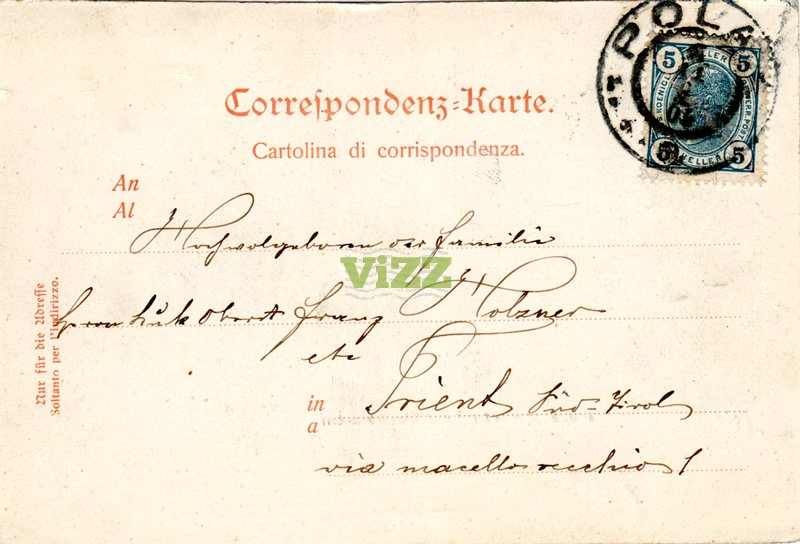 POLA
5 HELLER 5
5 HELLER 5
Correspondenz-Karte.
Cartolina di corrispondenza.
An
Al
Hochwolgeboren der Familie
ViZZ
Herrn k.u.k. Oberst Franz Holzner
etc
in Trient Süd-Tirol
a
via macello vecchio 1
Nur für die Adresse
Soltanto per l'indirizzo.